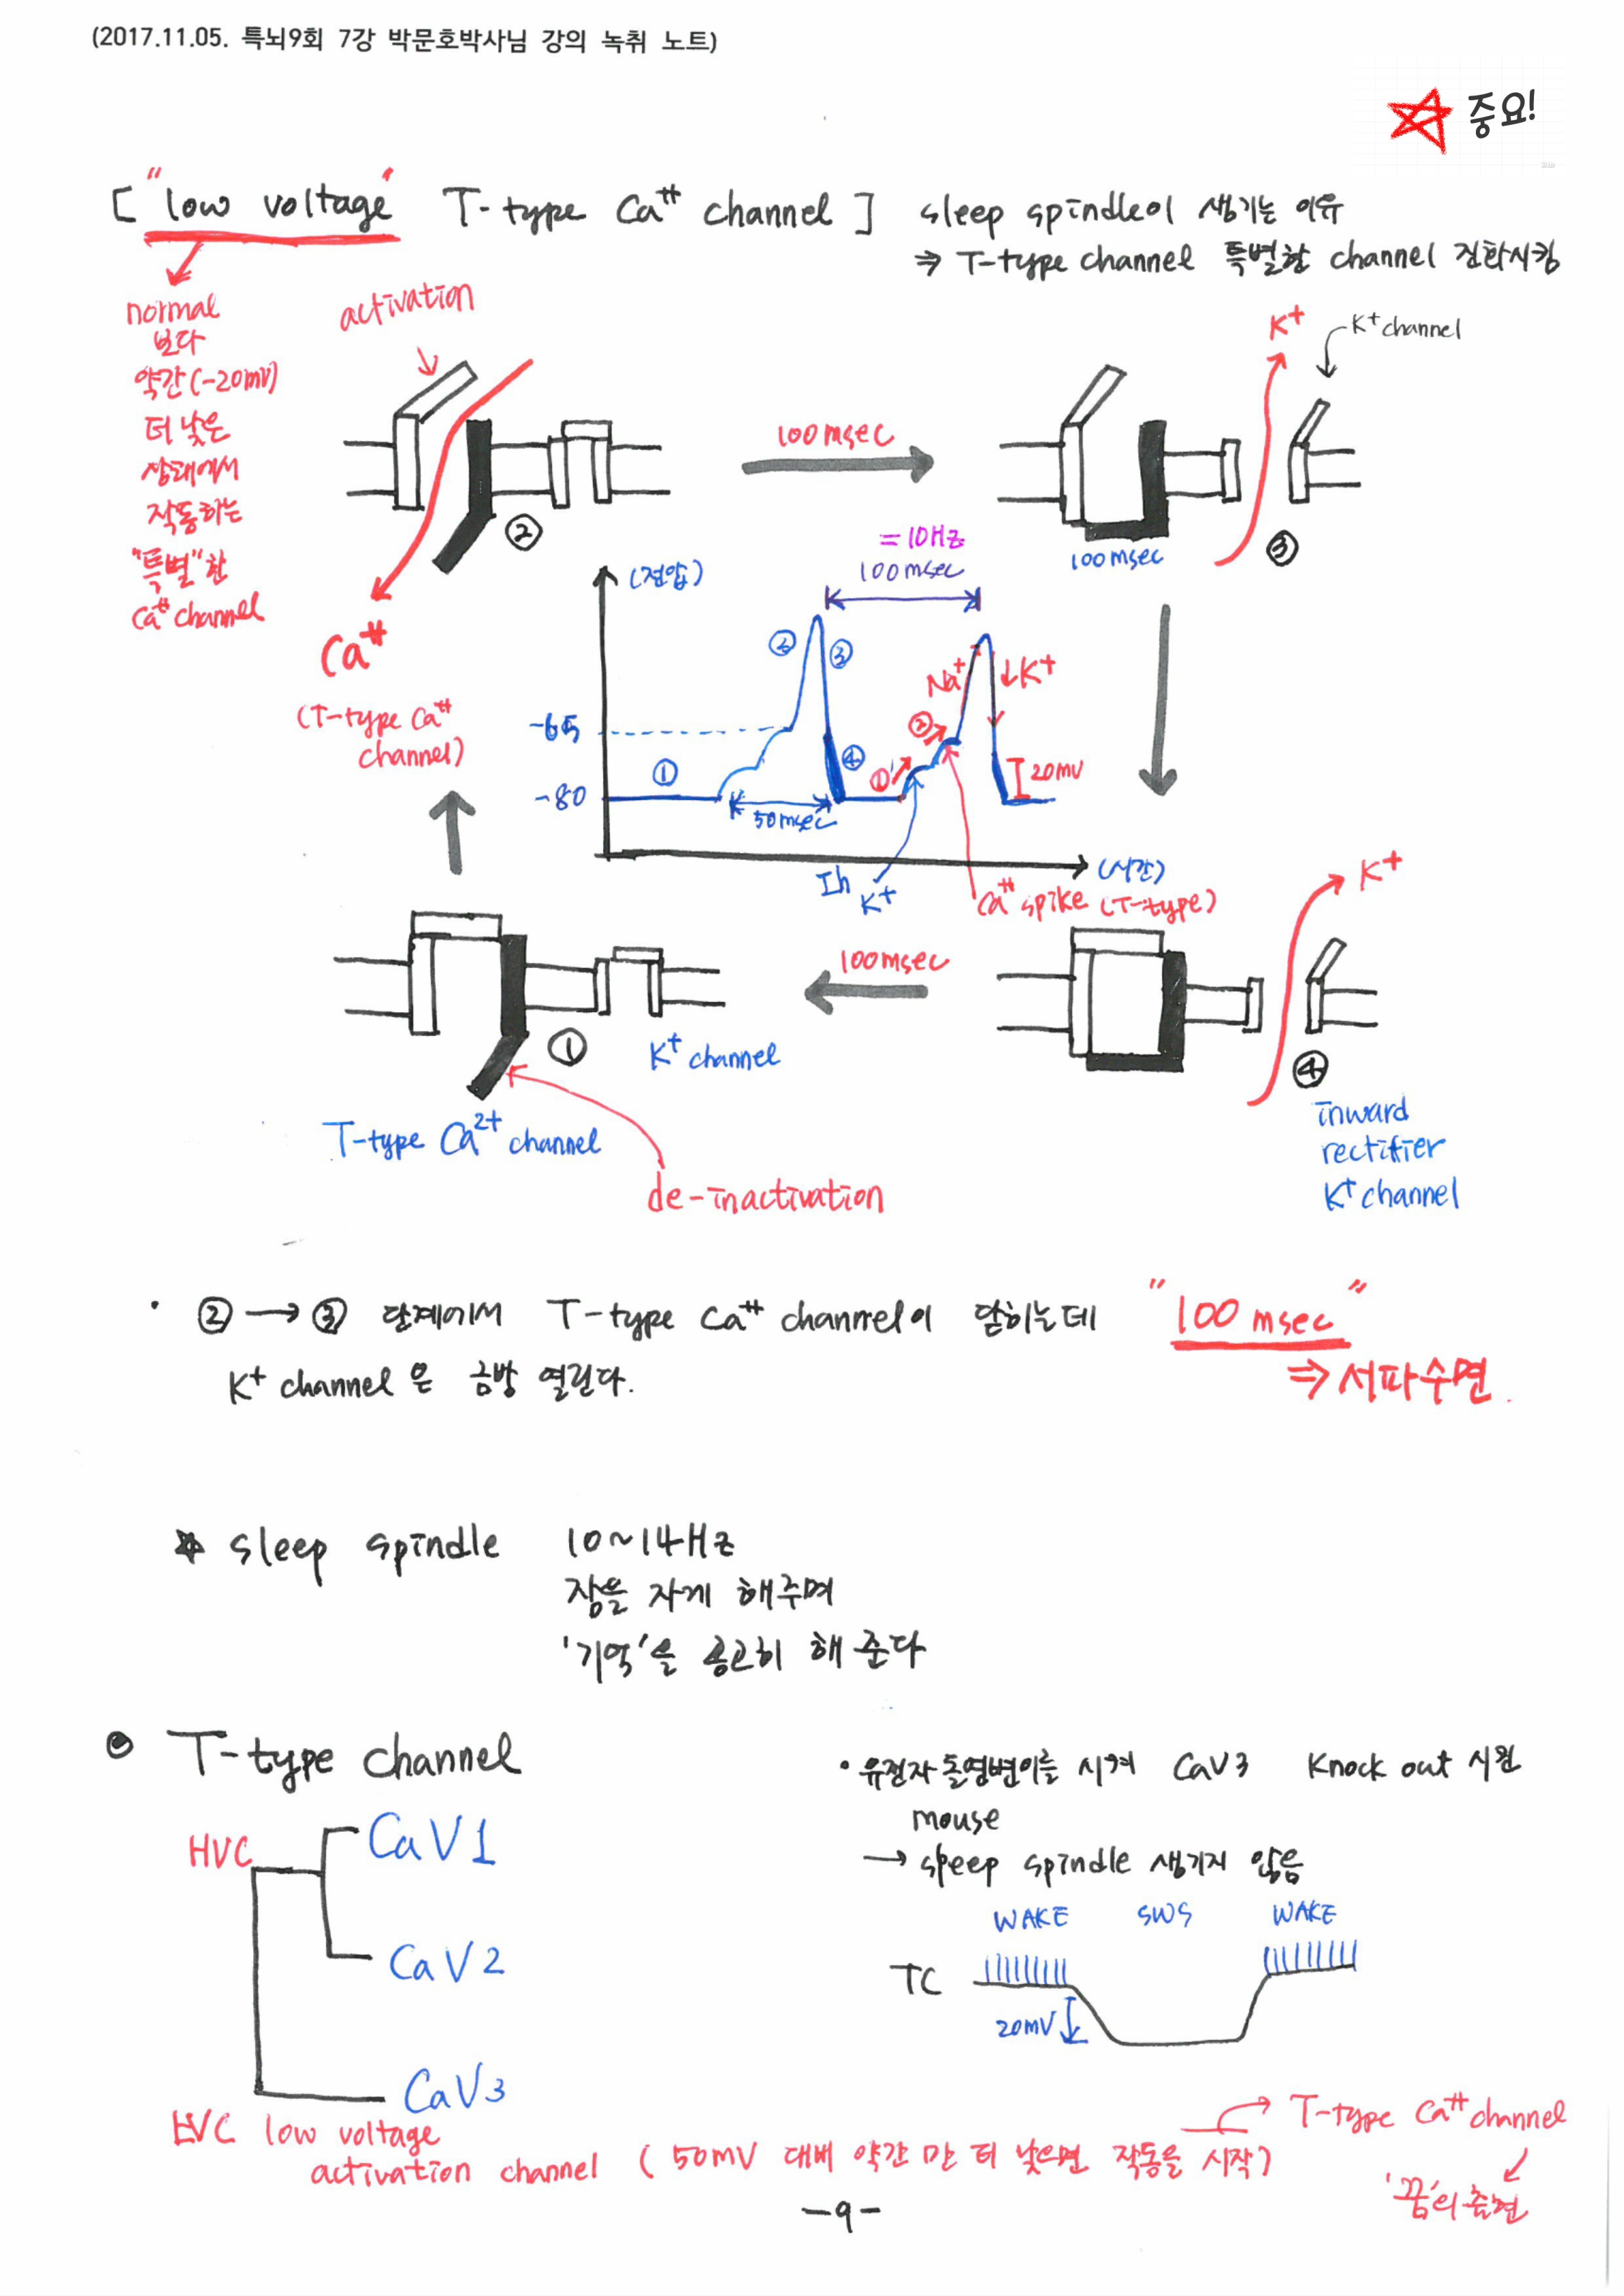 (2017.11.05. 특뇌9회 7강 박문호박사님 강의 녹취 노트)
중요!
["low voltage" T-type Ca⁺⁺ channel] sleep spindle이 생기는 이유
⇒ T-type channel 특별한 channel 진화시킴
normal
보다
약간(-20mV)
더 낮은
상태에서
작동하는
"특별"한
Ca⁺⁺ channel
activation
②
Ca⁺⁺
(T-type Ca⁺⁺
channel)
100msec
K⁺
K⁺ channel
100msec
③
=10Hz
100msec
(전압)
②
③
Na⁺
↓K⁺
-65
-80
①
④
①'
②
20mV
50msec
(시간)
Ih
K⁺
Ca⁺⁺ spike (T-type)
100msec
①
K⁺ channel
T-type Ca²⁺ channel
de-inactivation
K⁺
④
inward
rectifier
K⁺ channel
· ②→③ 단계에서 T-type Ca⁺⁺ channel이 닫히는데 "100 msec"
K⁺ channel은 금방 열린다.
⇒ 서파수면.
☆ sleep spindle 10~14Hz
잠을 자게 해주며
'기억'을 공고히 해 준다
T-type channel
HVC
CaV1
CaV2
CaV3
LVC low voltage
activation channel (50mV 대비 약간 만 더 낮으면 작동을 시작)
· 유전자 돌연변이를 시켜 CaV3 Knock out 시킨
mouse
→ speep spindle 생기지 않음
WAKE SWS WAKE
TC
20mV
→ T-type Ca⁺⁺ channel
'꿈'의 출현
-9-